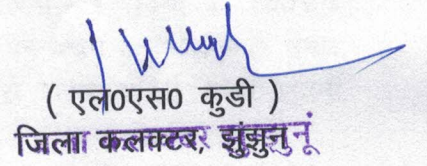 ( एल0एस0 कुडी )
जिला कलक्टर, झुंझुनूं